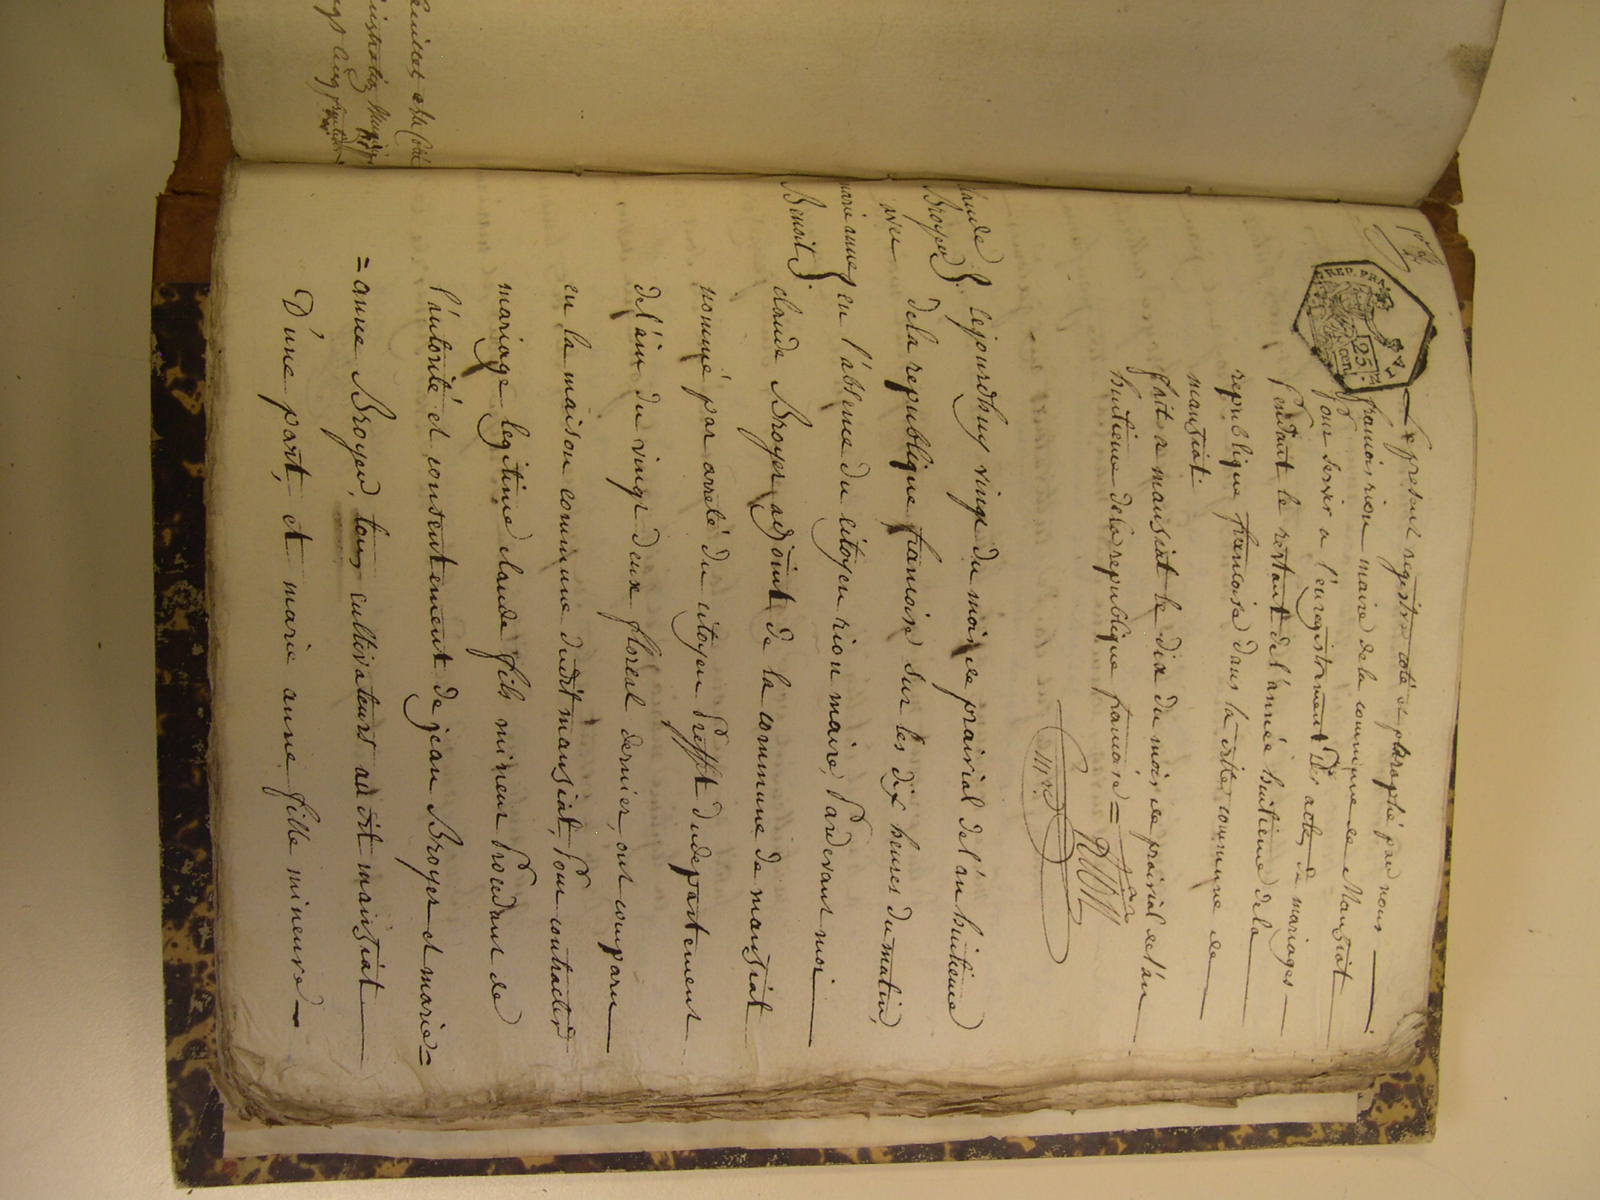 1er f.
REP. FRA
25
cen.
Le present registre coté et paraphé par nous
françois rion maire de la commune de Manziat
pour servir a l'enregistrement Des actes de mariages
Pendant le restant de l'année huitieme de la
republique francoise dans la ditte commune de
manziat
fait a manziat le dix du mois de prairial de l'an
huitieme de la republique francoise =
claude
Broyer
avec
marie anne
Benoit
Cejourdhuy vingt du mois de prairial de l'an huitieme
de la republique francoise sur les dix heures du matin,
en l'absence du citoyen rion maire, Pardevant moi
claude Broyer adjoint de la commune de manziat
nommé par arreté du citoyen Preffet du departement
de l'ain du vingt deux floreal dernier, ont comparu
en la maison commune dudit manziat, Pour contracter
mariage legitime claude fils mineur Procedant de
l'autorité et consentement de jean Broyer et marie=
=anne Broyer, tous cultivateurs au dit manziat
D'une part, et marie anne fille mineure